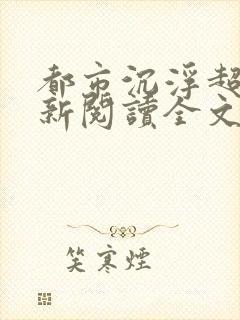 都市沉浮超
新閱讀全文
笑寒煙